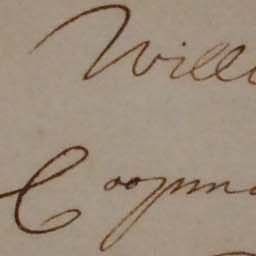 Willi
Coopma